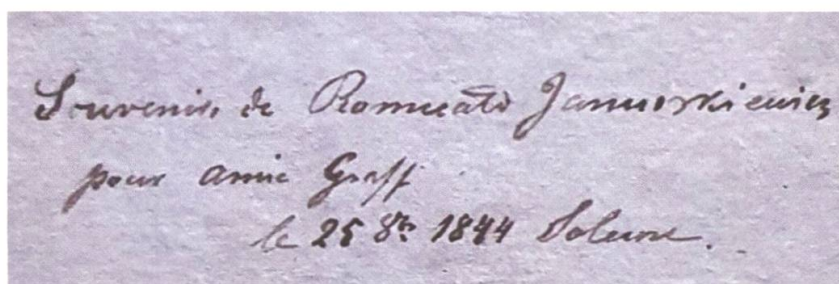 Souvenir de Romuald Januszkiewicz
pour amie Graff
le 25 8bre 1844 Soleure.